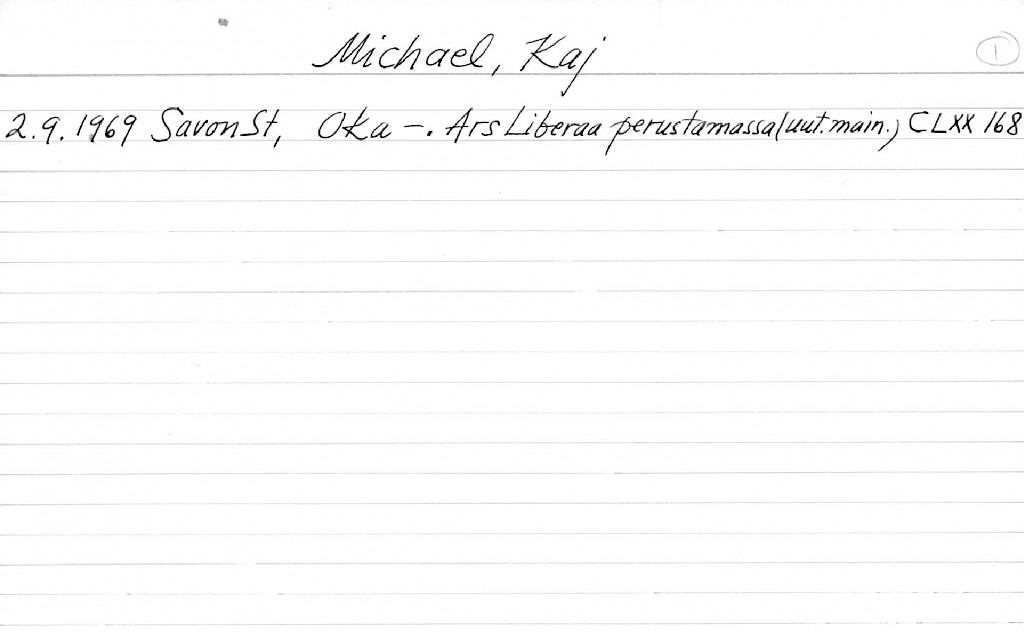 Michael, Kaj
1
2.9.1969 SavonSt, Oka -. Ars Liberaa perustamassa (uut.main.) CLXX 168